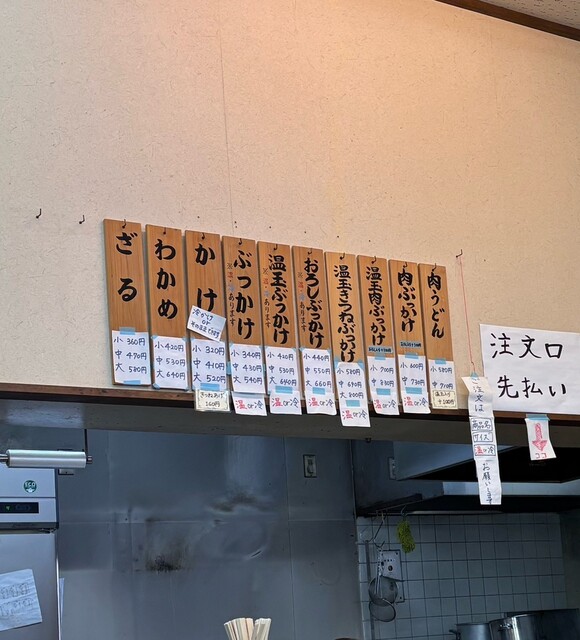 ざる
小 360円
中 470円
大 580円
わかめ
小 420円
中 530円
大 640円
かけ
冷かけ
or
そのままでOKです
小 320円
中 410円
大 520円
きつねあげ
160円
ぶっかけ
※温・冷あります
小 340円
中 430円
大 540円
温or冷
温玉ぶっかけ
※温・冷あります
小 420円
中 530円
大 640円
温or冷
おろしぶっかけ
※温・冷あります
小 440円
中 550円
大 660円
温or冷
温玉きつねぶっかけ
小 580円
中 690円
大 800円
温or冷
温玉肉ぶっかけ
中 700円
大 830円
温or冷
肉ぶっかけ
小 600円
中 730円
温or冷
肉うどん
小 580円
中 710円
温玉入り
+100円
注文口
先払い
ココ
注文は
商品名
サイズ
温or冷
お願いします
ECO